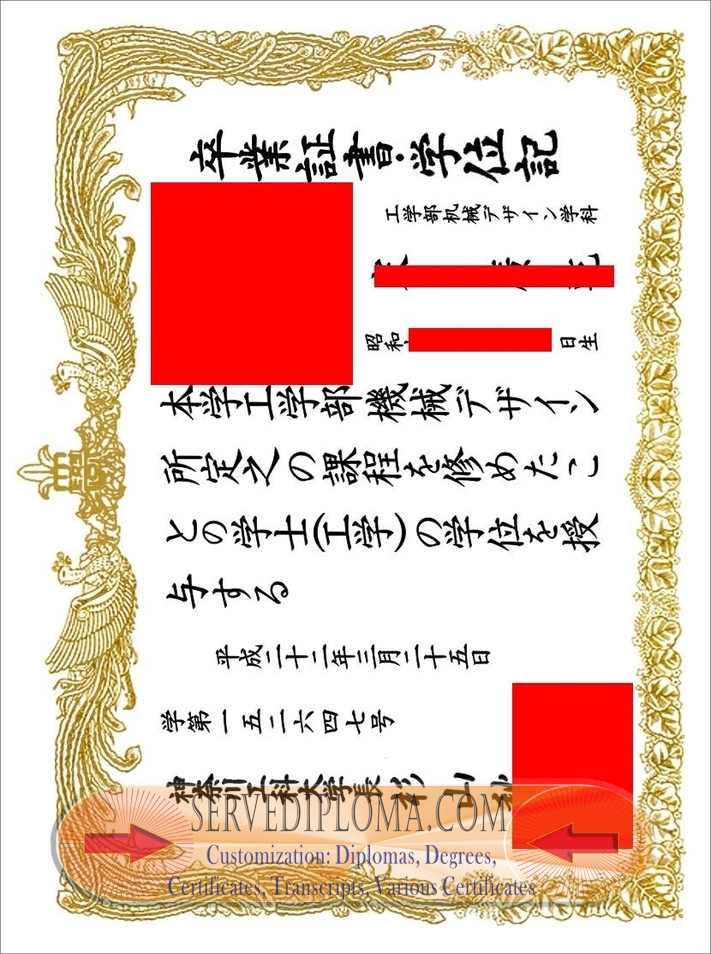 卒業証書・学位記
工学部机械デザイン学科
昭和 日生
本学工学部機械デザイン
所定之の課程を修めたこ
との学士(工学)の学位を授
与する
平成二十二年三月二十五日
学第一五二六四七号
神奈川工科大学長 杉山
SERVEDIPLOMA.COM
Customization: Diplomas, Degrees,
Certificates, Transcripts, Various Certificates